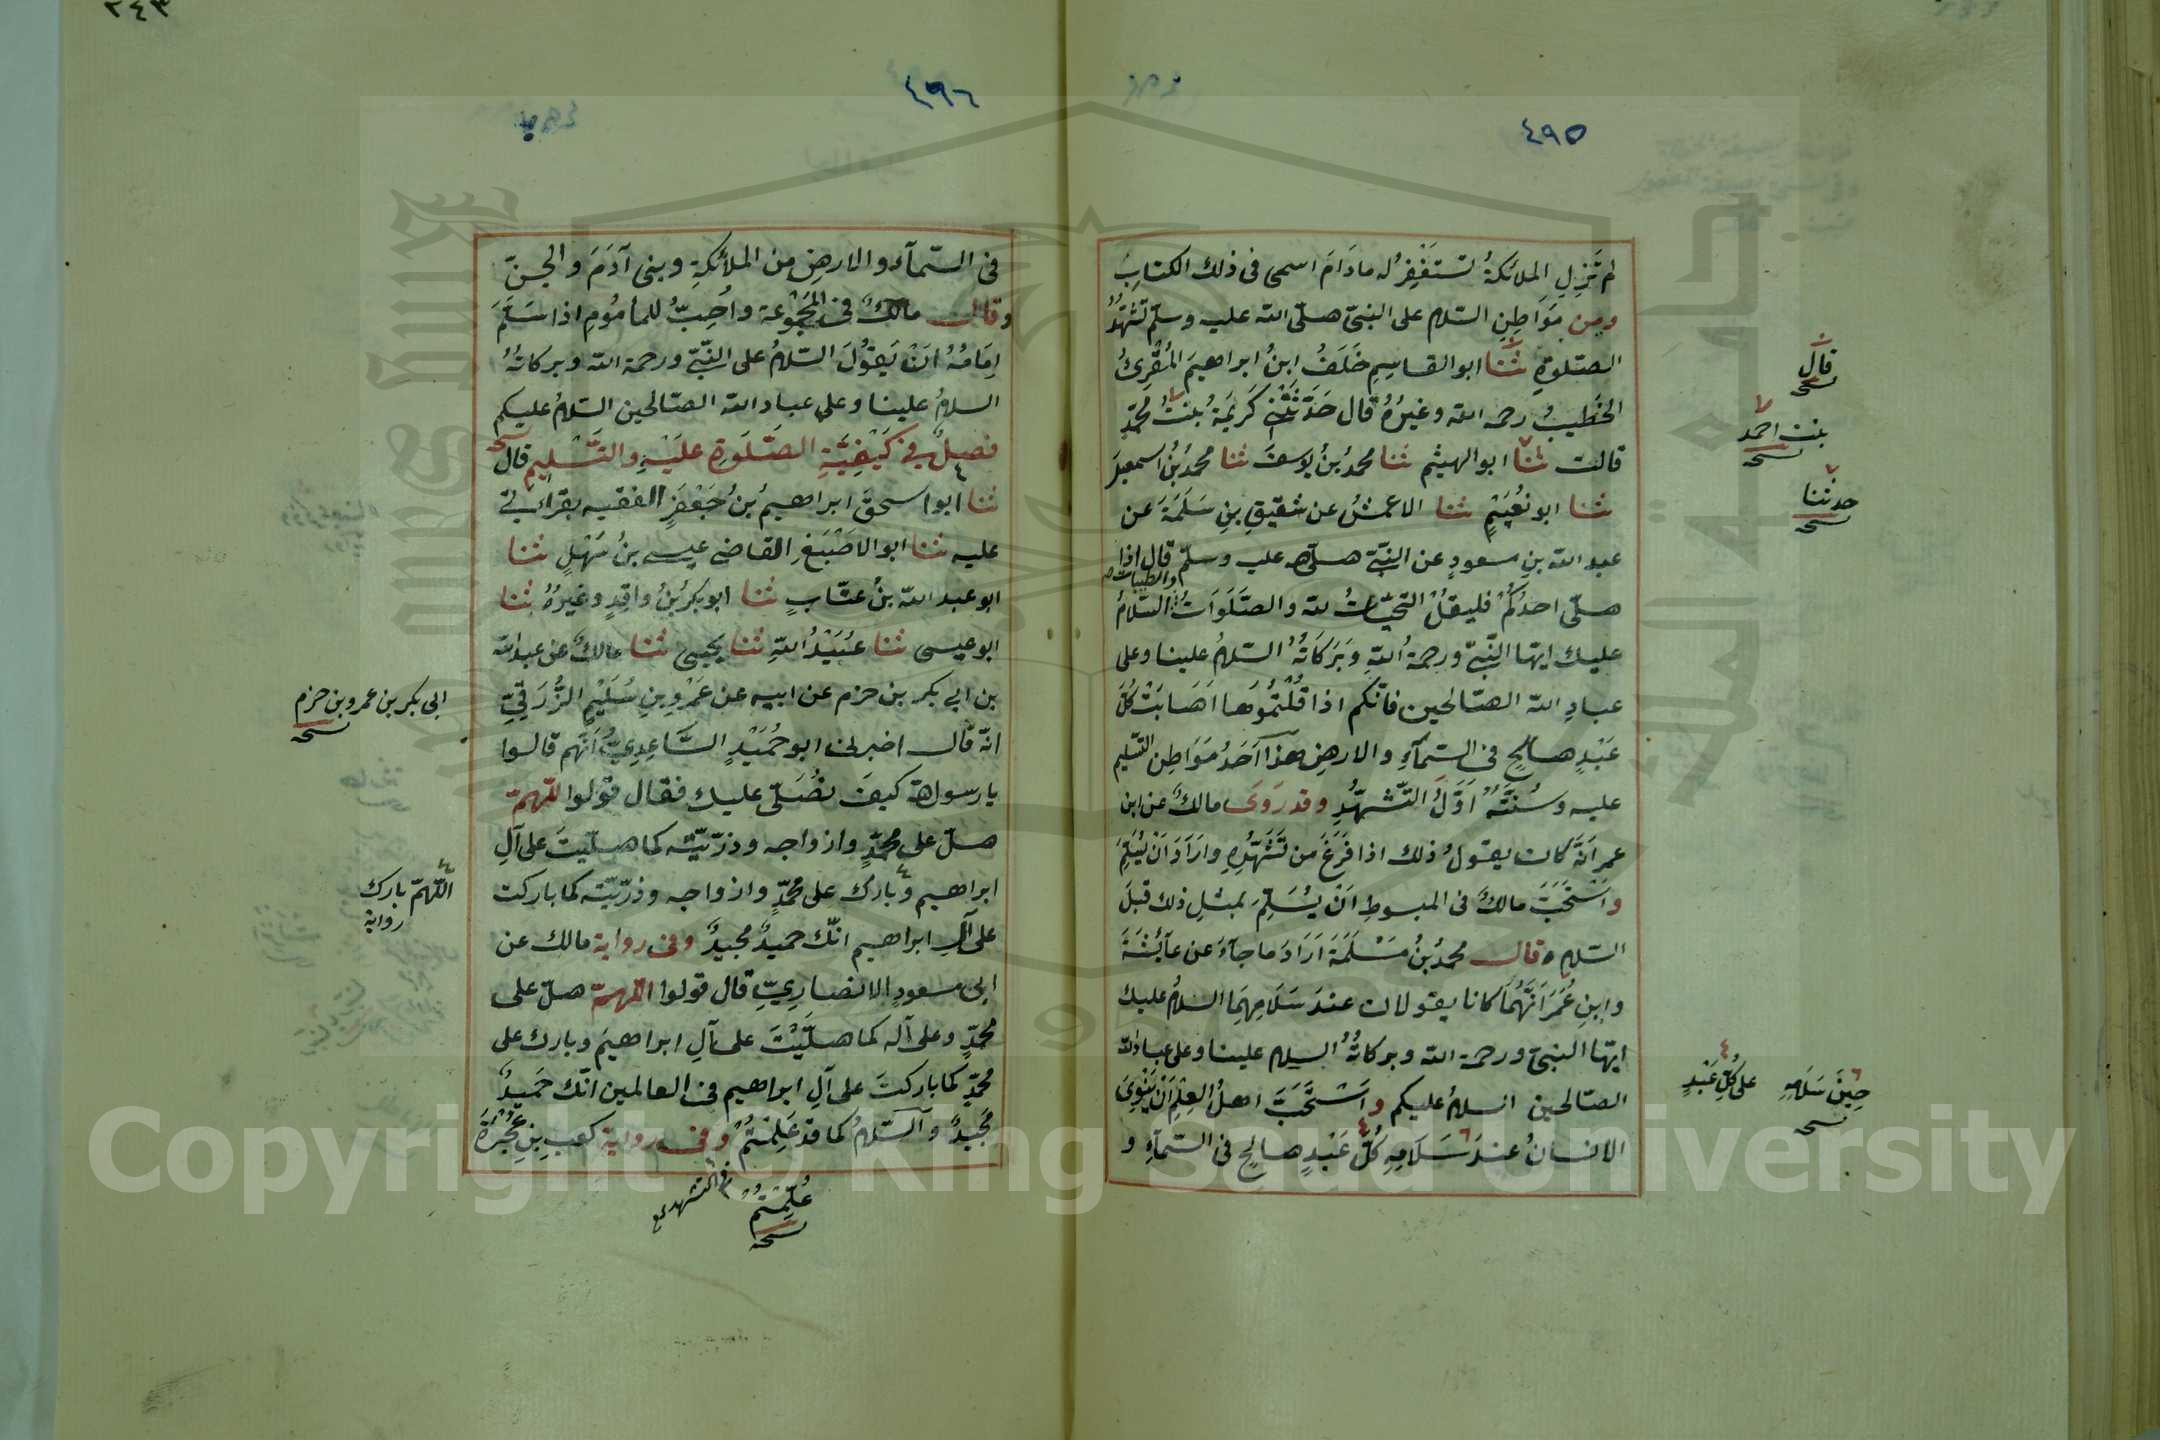 ٤٩٥
لم تَزِلِ الملائكةُ تستَغْفِرُ له مادَامَ اسمى فى ذلك الكتابِ
ومِن مَوَاطِنِ السّلام على النبىّ صلّى الله عليه وسلّم تَشَهُّدُ
الصّلوةِ ثنا ابو القاسِمِ خَلَفُ ابنُ ابراهيمَ المُقْرِئُ
الخَطيبُ رحمه الله وغيرُهُ قال حَدَّثَتْنِى كَرِيمَةُ بنتُ محمّدٍ
قالت ثنا ابو الهيثم ثنا محمدُ بنُ يوسفَ ثنا محمدُ بنُ اسمعيلَ
ثنا ابو نُعَيْمٍ ثنا الاعمشُ عن شقيقِ بنِ سَلَمَةَ عن
عبد الله بنِ مسعودٍ عن النبىّ صلّى الله عليه وسلّم قال اذا
صلّى احدُكُمْ فليقُلْ التحيّاتُ لله والصَّلَوَاتُ السّلامُ
والطيبات
عليك ايّها النبىّ ورحمةُ اللهِ وبَرَكَاتُهُ السّلامُ علينا وعلى
عبادِ الله الصّالحين فانّكم اذا قُلْتُمُوهَا اَصَابَتْ كُلَّ
عَبْدٍ صالحٍ فى السّمآءِ والارضِ هذا اَحَدُ مَوَاطِنِ التسليم
عليه وسُنَّتُهُ اَوَّلُ التّشهّدِ وقد رَوَى مالكٌ عن ابن
عمر اَنَّه كان يقولُ ذلك اذا فَرَغَ من تَشَهُّدِهِ وارَادَ اَنْ يُسَلِّمَ
وَاسْتَحَبَّ مالكٌ فى المبسوطِ اَنْ يُسَلِّمَ بمثلِ ذلك قبلَ
السّلامِ وقال محمدُ بنُ مَسْلَمَةَ اَرَادَ ما جآءَ عن عآئشةَ
وابنِ عُمَرَ اَنَّهُمَا كانا يقولان عندَ سَلَامِهِمَا السّلامُ عليك
ايّها النبىّ ورحمة الله وبركاتُهُ السلام علينا وعلى عباد الله
الصّالحين السلامُ عليكم وَاسْتَحَبَّ اهلُ العِلْمِ اَنْ يَنْوِىَ
الانسانُ عندَ سَلَامِهِ كُلَّ عَبْدٍ صالحٍ فى السّمآءِ و
قال
نسخه
بنت احمد
نسخه
حدثنا
نسخه
حِيْنَ سَلَامِهِ
نسخه
على كُلِّ عَبْدٍ
٢٤٣
٤٩٦
فى السّمآء والارضِ من الملائكةِ وبنى آدَمَ والجنّ
وقال مالكٌ فى المَجْمُوعَة واُحِبُّ للمأمُومِ اذا سَلَّمَ
اِمَامُهُ اَنْ يَقُولَ السّلامُ على النَّبِىّ ورحمة الله وبركاتُهُ
السلامُ علينا وعلى عباد الله الصّالحين السّلامُ عليكم
فصلٌ فِى كَيْفِيَّةِ الصَّلَوةِ عَلَيْهِ والتَّسْلِيمِ قال
ثنا ابو اسحقَ ابراهيمُ بنُ جَعْفَرٍ الفقيه بقرائتى
عليه ثنا ابو الاَصْبَغِ القاضى عيسى بنُ سَهْلٍ ثنا
ابو عبد الله بنُ عتّابٍ ثنا ابو بكرُ بنُ واقدٍ وغيرُهُ ثنا
ابو عيسى ثنا عُبَيْدُ اللهِ ثنا يحيى ثنا مالكٌ عن عبد الله
بن ابى بكر بن حزم عن ابيه عن عَمْرِو بنِ سُلَيْمٍ الزُّرَقِىِّ
انّه قال اخبرنى ابو حُمَيْدٍ السَّاعِدِىُّ اَنّهم قالوا
يا رسول الله كيفَ نُصَلّى عليك فقال قولوا اللّهمّ
صلّ على محمّدٍ وازواجه وذرّيّته كما صلّيتَ على آلِ
ابراهيم وبارك على محمّدٍ وازواجه وذرّيّته كما باركت
على آلِ ابراهيم انّك حميدٌ مجيدٌ وفى رواية مالك عن
ابى مسعودٍ الانصارِىّ قال قولوا اللّهمّ صلّ على
محمّدٍ وعلى آله كما صلَّيْتَ على آلِ ابراهيمَ وبارك على
محمّدٍ كما باركتَ على آلِ ابراهيم فى العالمين انّك حَميدٌ
مَجيدٌ وَالسّلامُ كما قد عَلِمْتُمْ وفى رواية كعبِ بنِ عُجْرَةَ
ابى بكر بن عمرو بن حزم
نسخه
اللّهمّ بارك
رواية
فى التشهد
عُلِّمْتُمْ
نسخه
Copyright © King Saud University